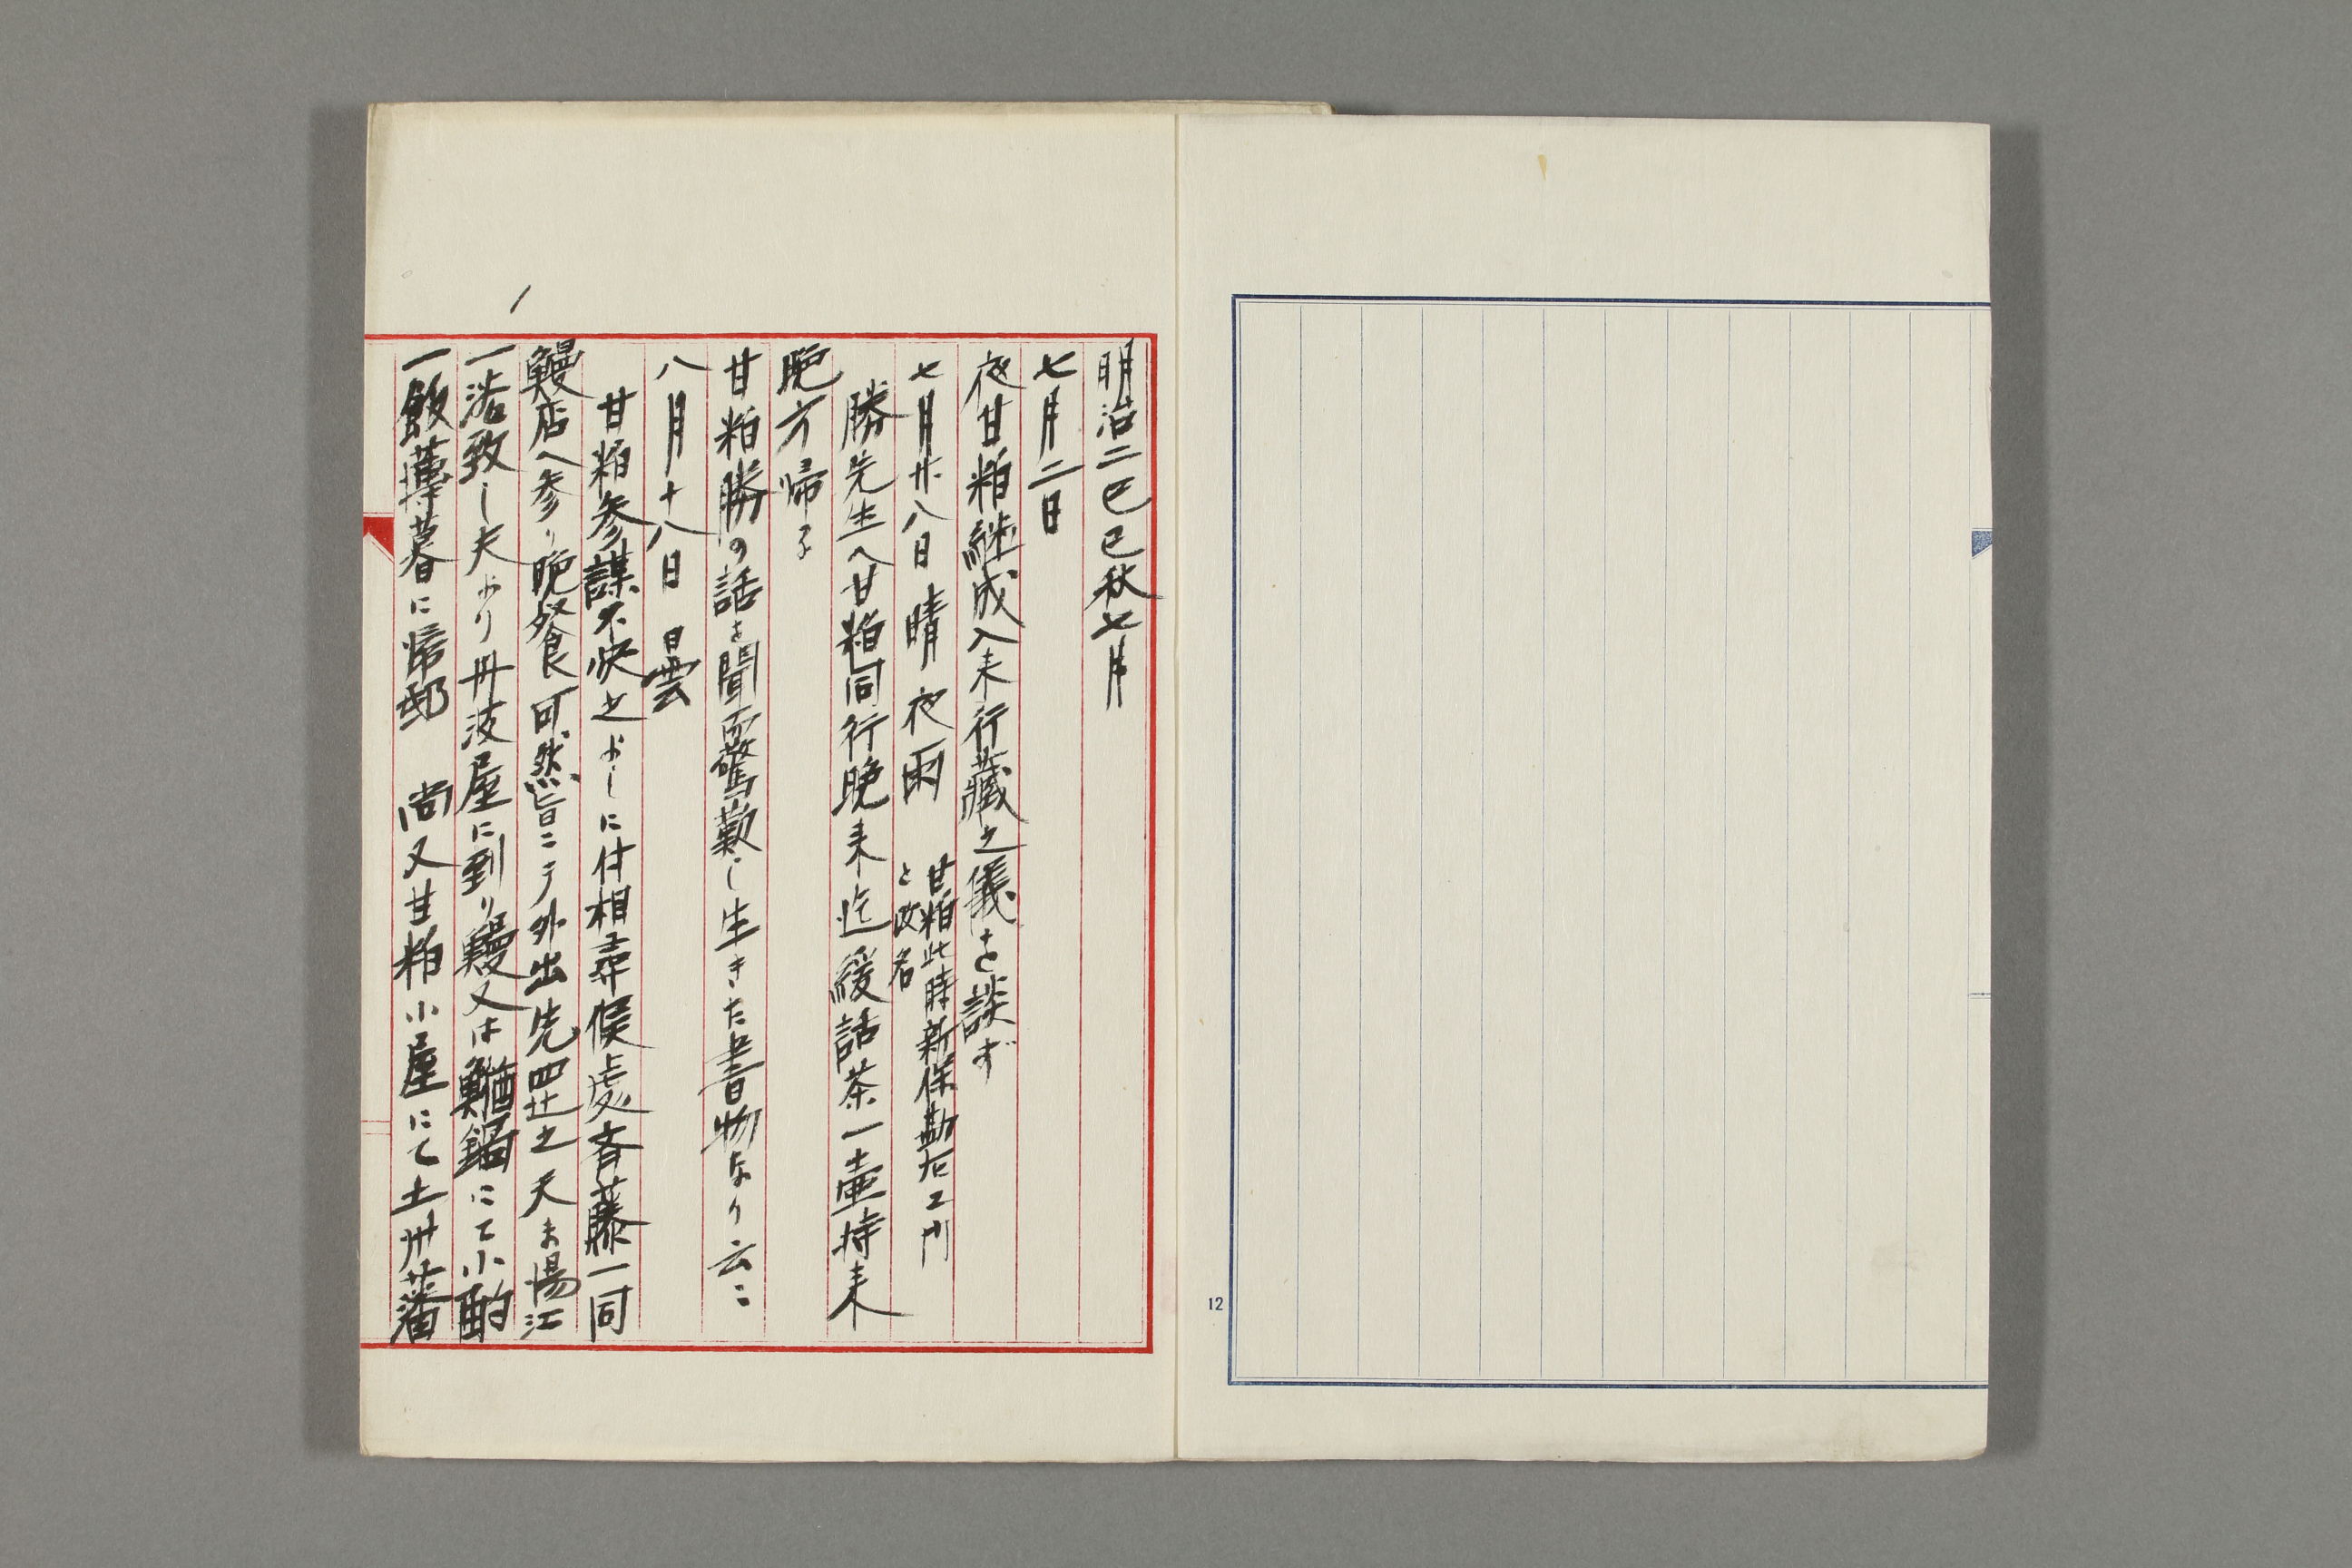 明治二己巳秋七月
七月二日
夜甘粕継成入来行蔵之儀を談ず
七月廿八日 晴 夜雨 甘粕此時新保勘左エ門
と改名
勝先生へ甘粕同行晩来迄緩話茶一壷持来
晩方帰る
甘粕勝の話を聞而驚歎し生きた書物なり云々
八月十八日 曇
甘粕参謀不快之よしに付相尋候処斉藤一同
鰻店へ参り晩餐可然旨ニテ外出先四辻之天ま湯江
一浴致し夫より丹波屋に到り鰻又は鰌鍋にて小酌
一飯薄暮に帰邸 尚又甘粕小屋にて土州藩
12